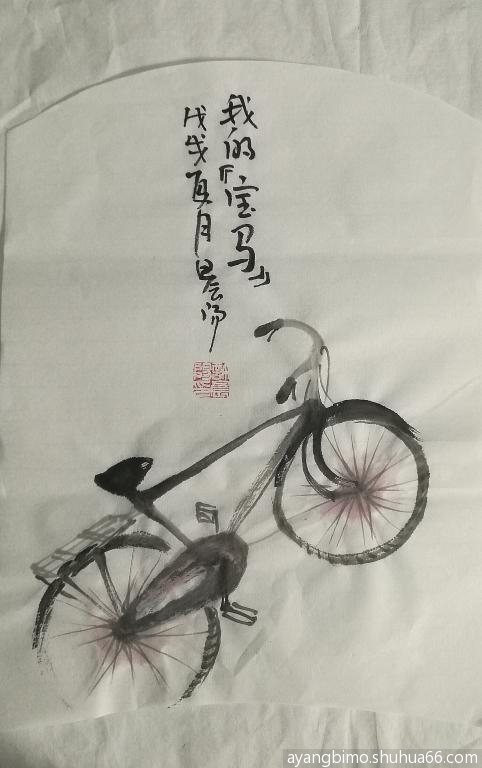 我的『宝马』
戊戌夏月
ayangbimo.shuhua66.com